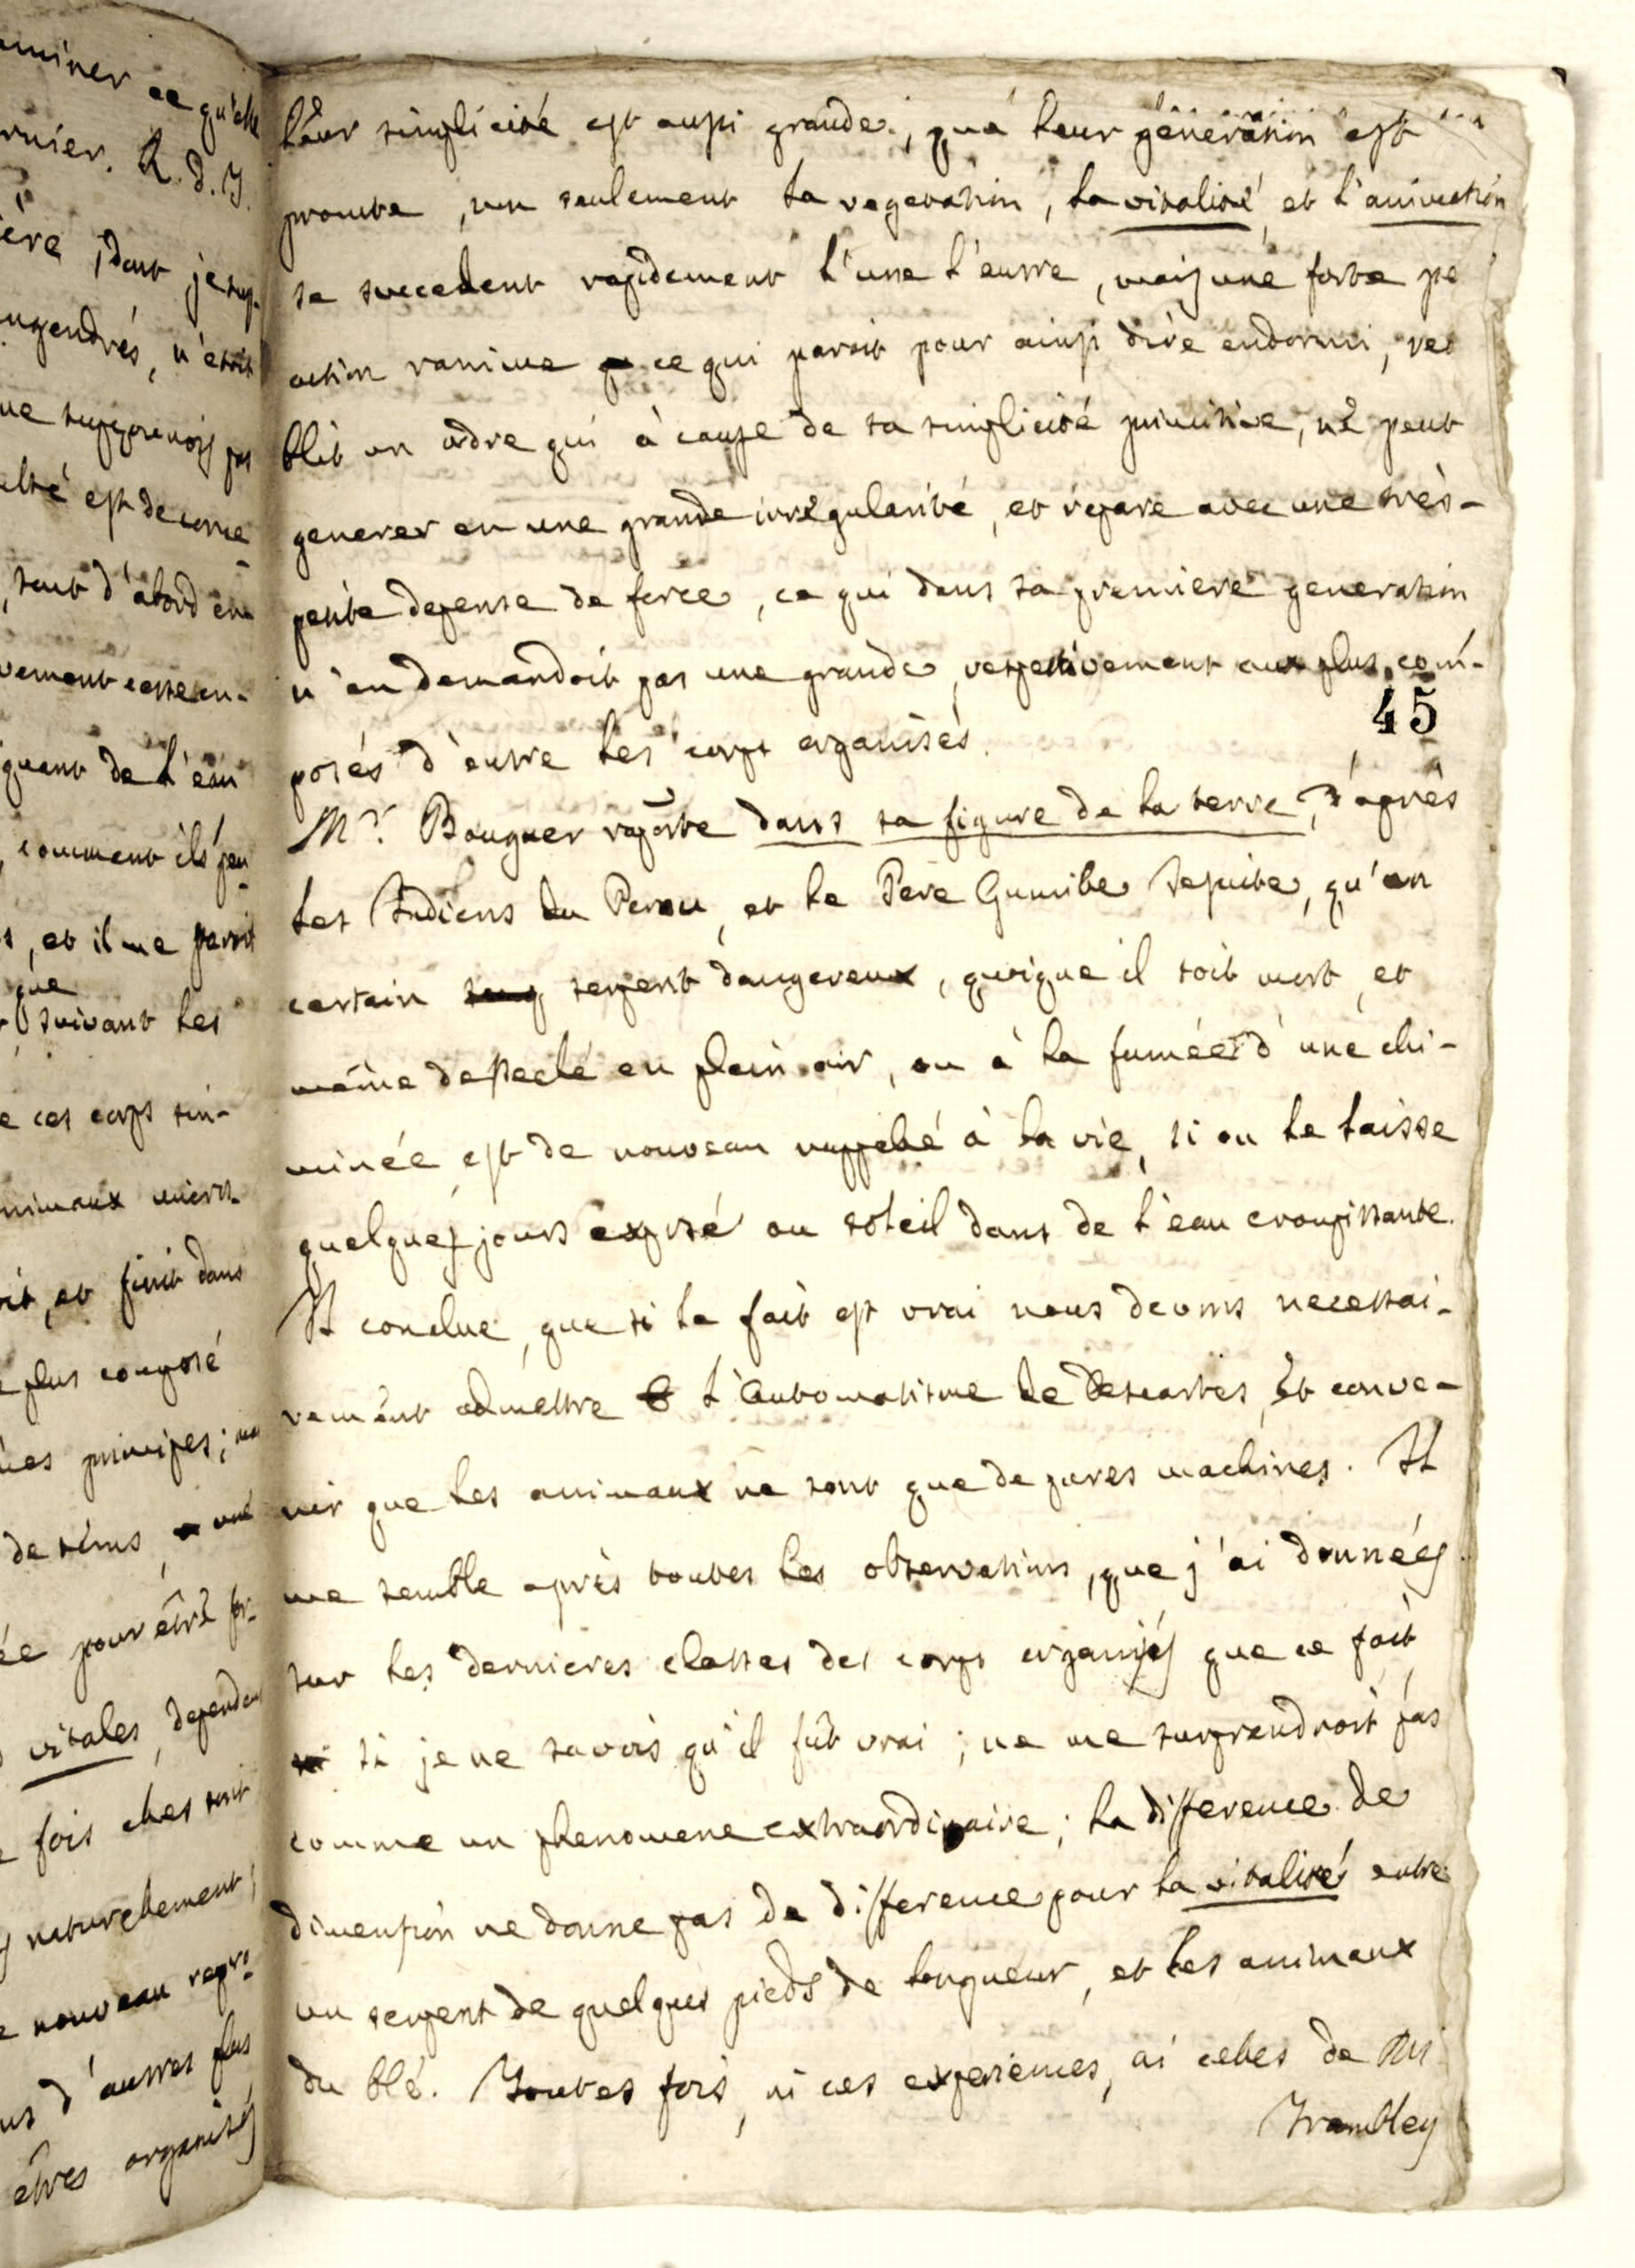 aminer ce qu'elle
rnier. R. d. J.
ère, dont je sup-
ngendrés, n'etoit
ne supposerois pas
ulté est de conce-
, sont d'abord en-
vement cette en-
quent de l'eau
, comment ils peu-
s, et il me paroit
que
suivant les
e ces corps sin-
nimaux micros-
oit, et finit dans
e plus composé
mes principes;
de tems, une
ée pour être for-
vitales, dependen
fois elles sont
naturellement,
nouveau repro-
ns d'autres plus
êtres organisés
leur simplicité est aussi grande, que leur géneration est
promte, non seulement la vegetation, la vitalité, et l'animation
se succedent rapidement l'une l'autre, mais une forte pe
action ranime ce qui paroit pour ainsi dire endormi, reta
blit un ordre qui à cause de sa simplicité primitive, ne peut
generer en une grande irrégularité, et répare avec une très-
petite depense de force, ce qui dans sa premiere generation
n'en demandoit pas une grande, respectivement aux plus com-
45
posés d'entre les corps organisés.
Mr. Bouguer raporte dans sa figure de la terre, d'après
les Indiens du Perou, et le Père Gumille Jesuite, qu'un
certain serpent dangereux, quoique il soit mort, et
même desseché en plein air, ou à la fumée d'une chi-
minée, est de nouveau rappelé à la vie, si on le laisse
quelques jours exposé au soleil dans de l'eau croupissante.
Il conclue, que si le fait est vrai nous devons necessai-
rement admettre l'Automatisme de Descartes, et conve-
nir que les animaux ne sont que de pures machines. Il
me semble après toutes les observations, que j'ai données
sur les dernieres classes des corps organisés que ce fait
si je ne savois qu'il fût vrai; ne me surprendroit pas
comme un phenomene extraordinaire; la difference de
dimension ne donne pas de difference pour la vitalité entre
un serpent de quelques pieds de longueur, et les animaux
du blé. Toutes fois, ni ces experiences, ni celles de Mr
Trambley